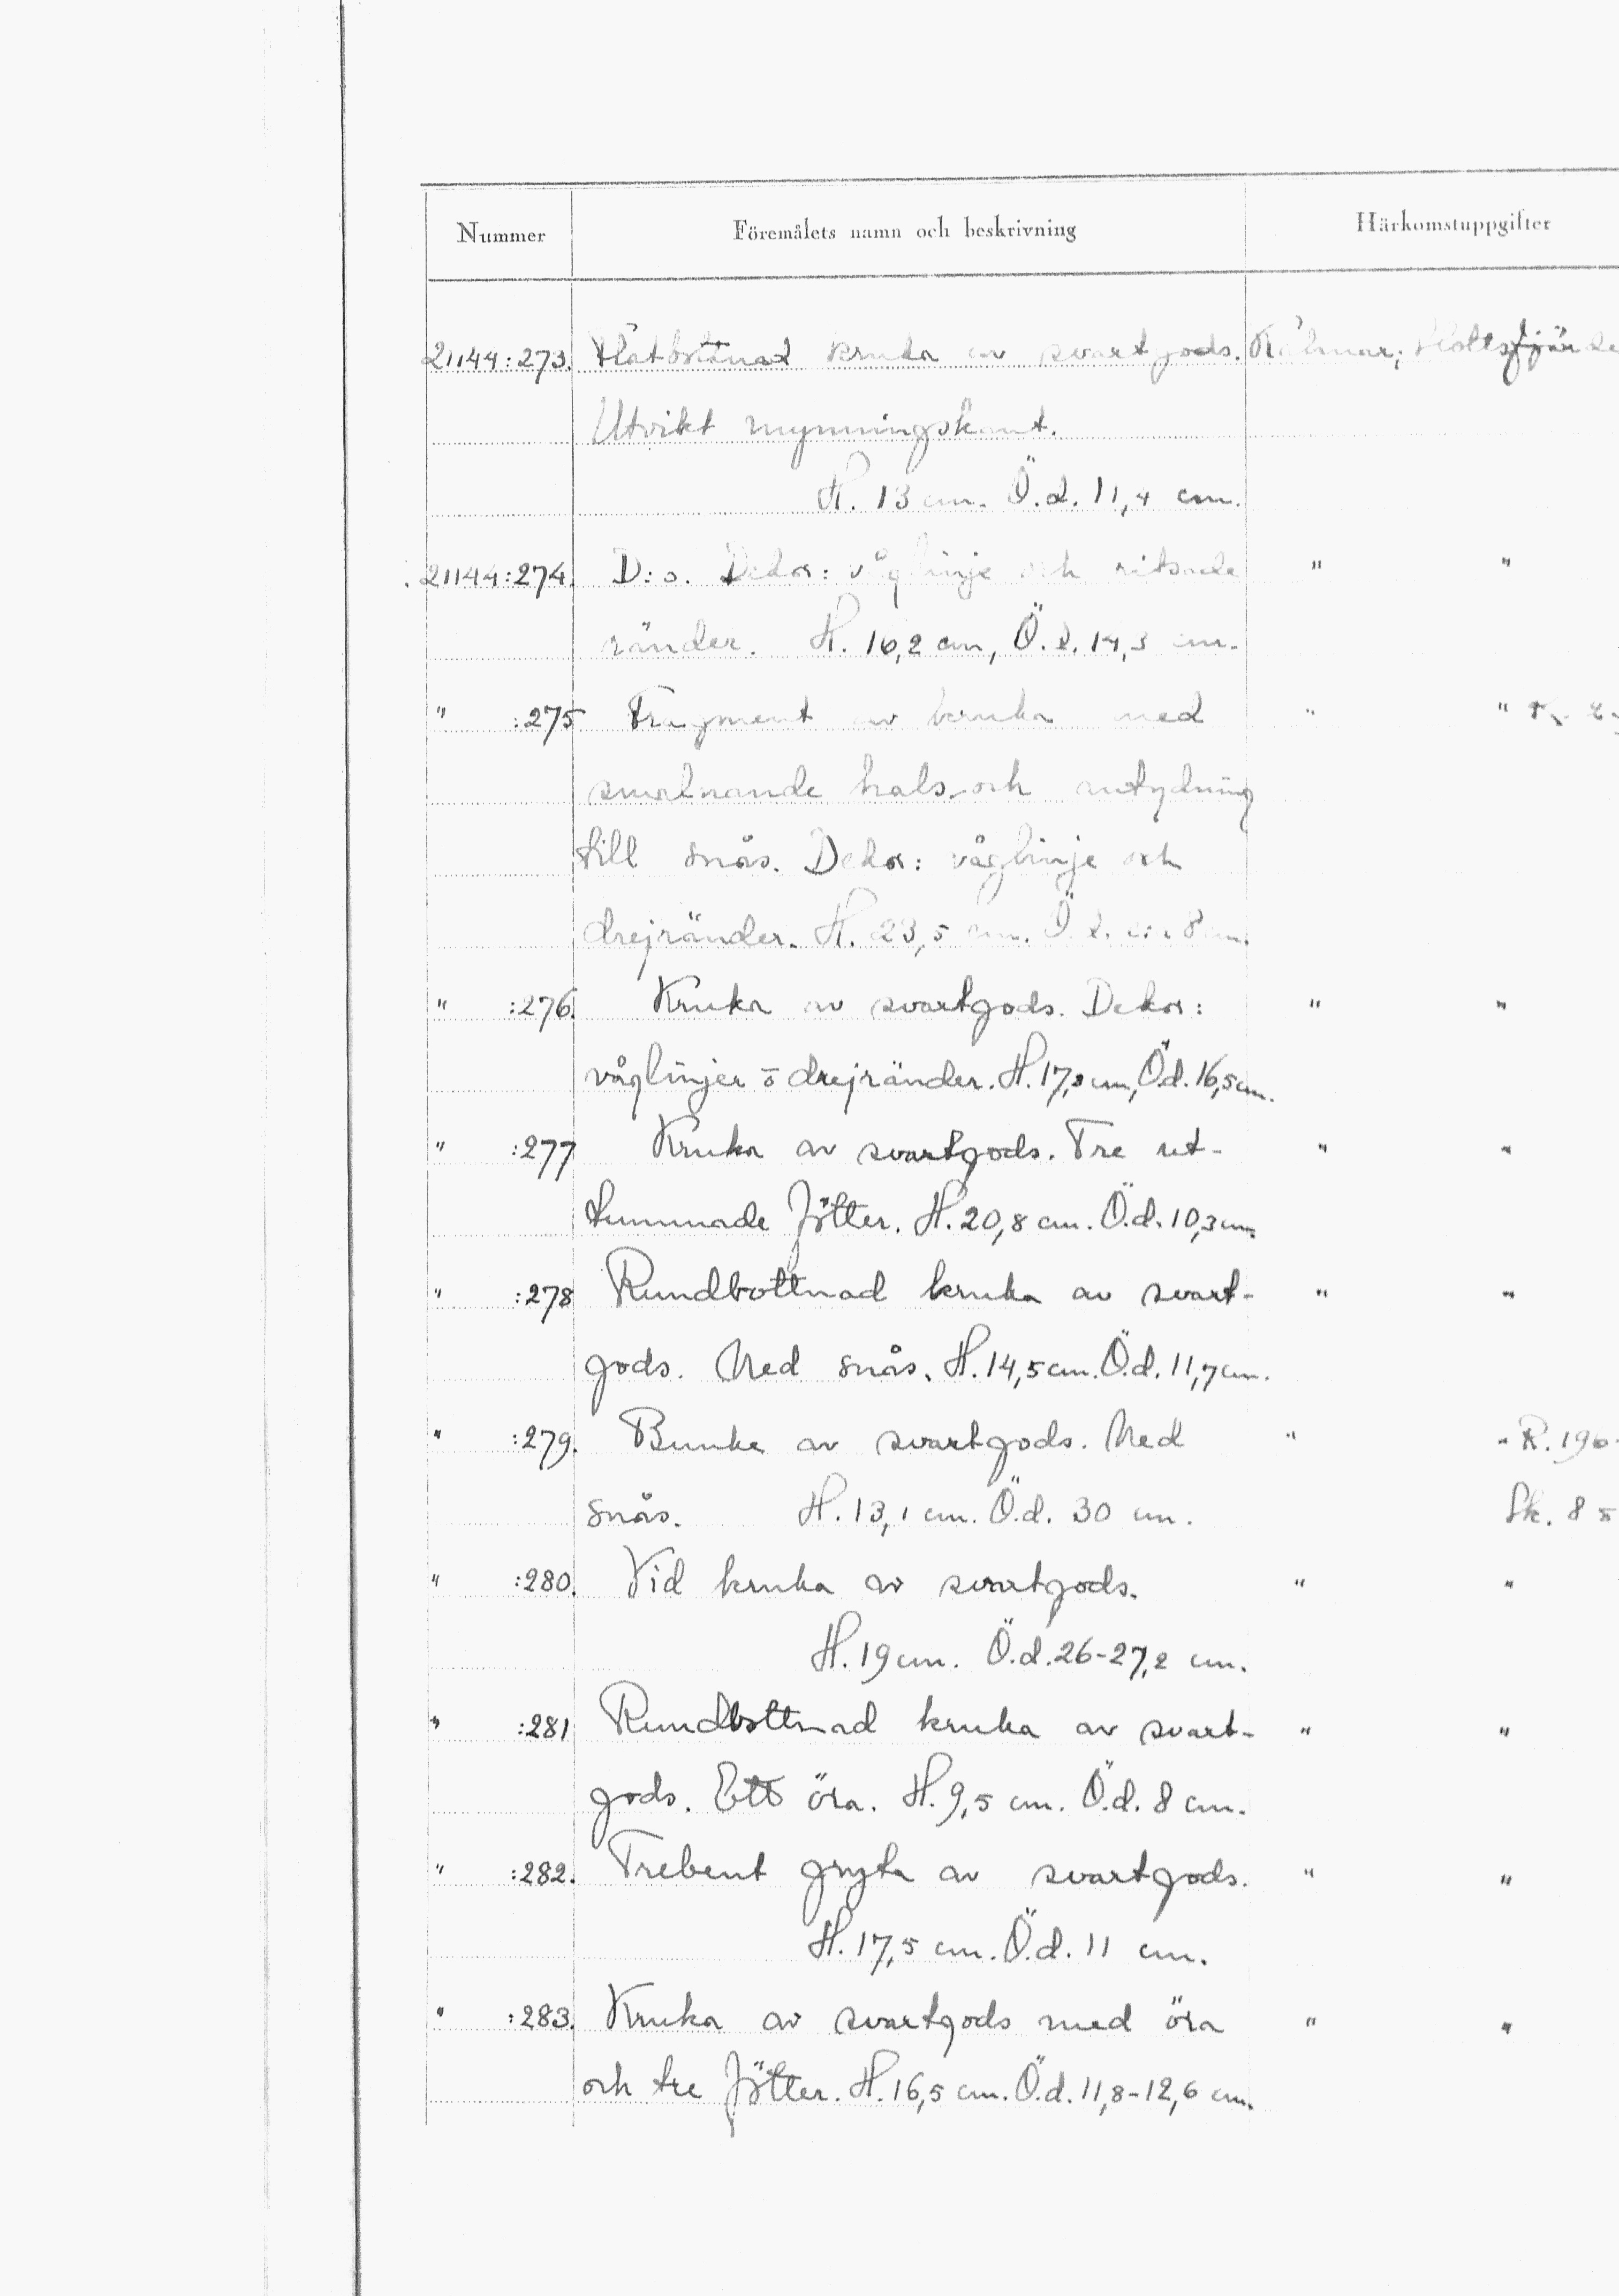 Nummer Föremålets namn och beskrivning Härkomstuppgifter
21144:273. Flatbottnad kruka av svartgods. Kalmar; Slottsfjärde
Utvikt mynningskant.
H. 13 cm. Ö.d. 11,4 cm.
21144:274. D:o. Dekor: våglinje och ritsade " "
ränder. H. 16,2 cm, Ö.d. 14,3 cm.
" :275 Fragment av kruka med " "
smalnande hals och antydning
till snås. Dekor: våglinje och
drejränder. H. 23,5 cm. Ö.d. c:a 8 cm.
" :276. Kruka av svartgods. Dekor: " "
våglinjer o drejränder. H. 17, cm, Ö.d. 16,5 cm.
" :277 Kruka av svartgods. Tre ut- " "
tummade fötter. H. 20,8 cm. Ö.d. 10,3 cm.
" :278 Rundbottnad kruka av svart- " "
gods. Med snås. H. 14,5 cm. Ö.d. 11,7 cm.
" :279. Bunke av svartgods. Med " " R. 196
snås. H. 13,1 cm. Ö.d. 30 cm. Sk. 85
" :280. Vid kruka av svartgods. " "
H. 19 cm. Ö.d. 26-27,2 cm.
" :281 Rundbottnad kruka av svart- " "
gods. Ett öra. H. 9,5 cm. Ö.d. 8 cm.
" :282. Trebent gryta av svartgods. " "
H. 17,5 cm. Ö.d. 11 cm.
" :283. Kruka av svartgods med öra " "
och tre fötter. H. 16,5 cm. Ö.d. 11,8-12,6 cm.